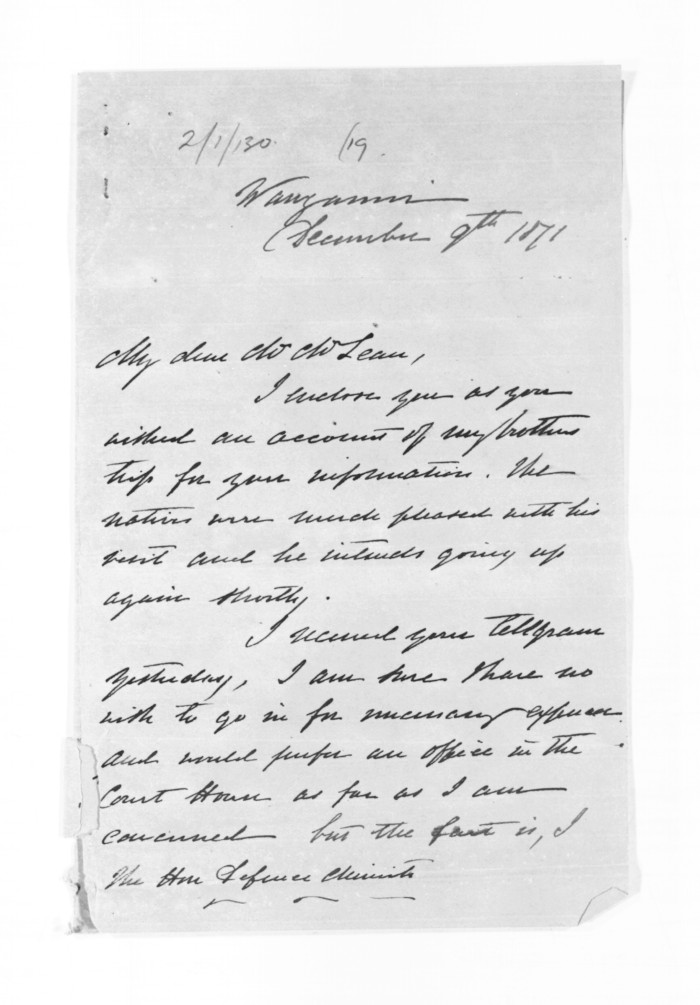 2/1/130 /19.
Wanganui
December 9th 1871
My dear Mr McLean,
I enclose you as you
wished an account of my brothers
trip for your information. The
natives were much pleased with his
visit and he intends going up
again shortly.
I received your telegram
yesterday, I am sure I have no
wish to go in for unnecessary expense
and would prefer an office in the
Court House as far as I am
concerned but the fact is, I
The Hon Defence Minister